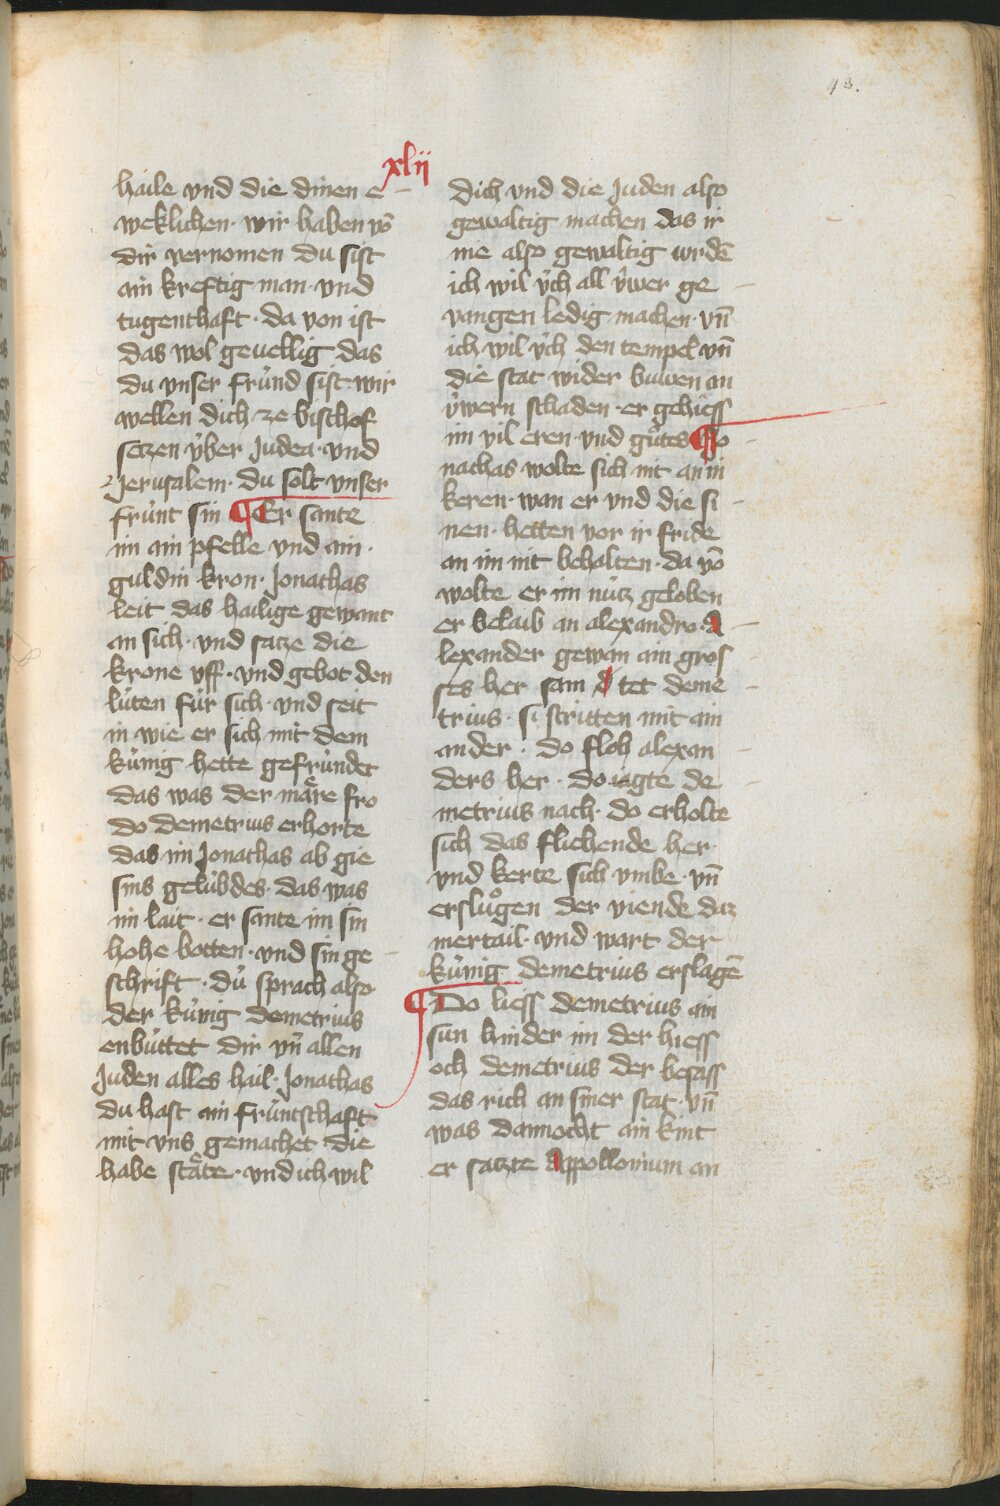 43.
xlij
haile vnd die dinen e
weklichen · wir haben vō
dir vernomen du sist
ain kreftig man · vnd
tugenthaft · da von ist
das wol geuellig das
du vnser frúnd sist · wir
wellen dich ze bischof
setzen v́ber Judea · vnd
Jerusalem · du solt vnser
frúnt sin ¶ Er sante
im ain pfelle vnd ain ·
guldin kron · Jonathas
leit das hailige gewant
an sich · vnd satze die
krone vff · vnd gebot den
lúten fúr sich · vnd seit
in wie er sich mit dem
kúnig hette gefrúndet
das was der märe fro
do demetrius erhorte
das im Jonathas ab gie
sins gelúbdes · das was
im lait · er sante im sin
hohe botten · vnd sin ge
schrift · dú sprach also
der kúnig demetrius
enbúttet dir vn̄ allen
Juden alles hail · Jonathas
du hast ain frúntschaft
mit vns gemachet die
habe stäte · vnd ich wil
dich vnd die Juden also
gewaltig machen das ir
me also gewaltig wrdē
ich wil v́ch all v́wer ge
vangen ledig machen · vn̄
ich wil v́ch den tempel vn̄
die stat wider buwen an
v́wern schaden · er gehiess
im vil eren · vnd gůtes ¶ Jo
nachas wolte sich nit an in
keren · wan er vnd die si
nen · hetten vor ir fride
an im nit behalten · da vō
wolte er im nútz geloben
er belaib an alexandro · a
lexander gewan ain gros
ses her sam &amp; tet deme
trius · si stritten mit ain
ander · do floh alexan
ders her · do iagte de
metrius nach · do erholte
sich das fliehende her ·
vnd kerte sich vmbe · vn̄
erslůgen der viende daz
mertail · vnd wart der
kúnig demetrius erslagē
¶ Do liess demetrius ain
sun hinder im der hiess
och demetrius der besass
das rich an siner stat · vn̄
was dannocht ain kint
er satzte Appollonium an